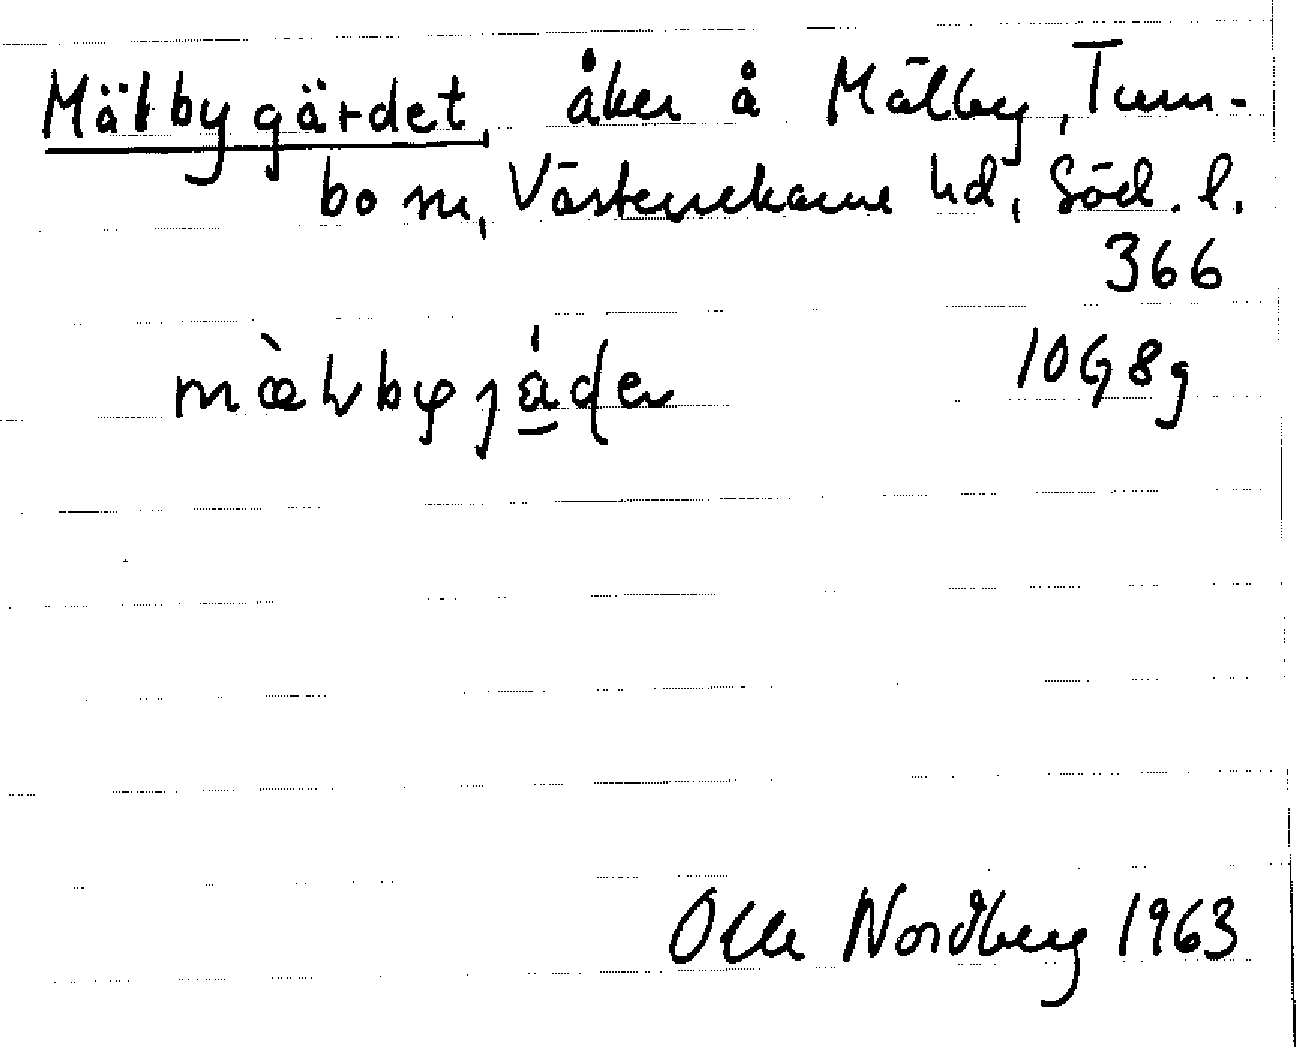 Mälbygärdet, åker å Mälby, Tum-
bo sn, Västerrekarne hd, Söd. l.
366
10G8g
Olle Nordberg 1963